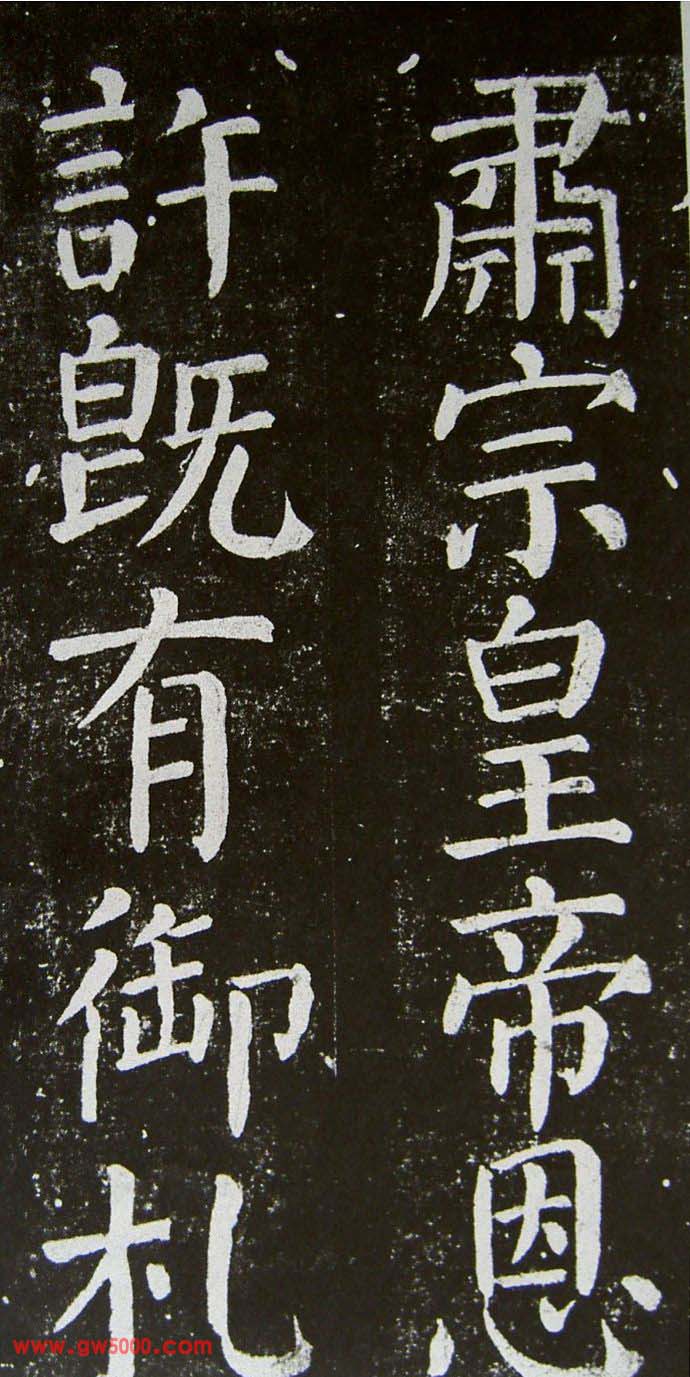 肅宗皇帝恩
許既有御札
www.gw5000.com